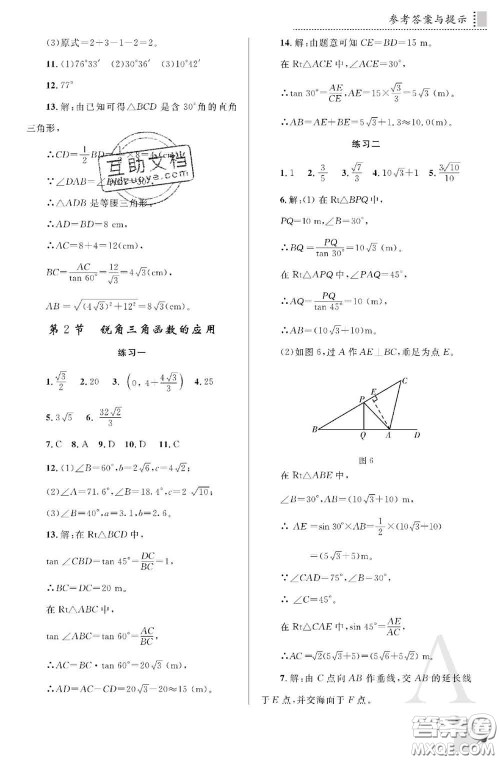 参考答案与提示
(3)原式=2+3-1-2=2.
11.(1)76°33′ (2)30°36′ (3)90°21′
12.77°
13.解:由已知可得△BCD是含30°角的直角
三角形,
∴CD=1/2 BD=
∵∠DAB=
∴△ADB是等腰三角形.
∴AD=BD=8(cm),
∴AC=8+4=12(cm),
BC=AC/tan 60°=12/√3=4√3(cm),
AB=√((4√3)²+12²)=8√3(cm).
第2节 锐角三角函数的应用
练习一
1.√3/2 2.20 3.(0,4+4√3/3) 4.25
5.3√5 6.32√2/3
7.C 8.A 9.D 10.D 11.C
12.(1)∠B=60°,b=2√6,c=4√2;
(2)∠A=71.6°,∠B=18.4°,c=2√10;
(3)∠B=40°,a=3.1,b=2.6.
13.解:在Rt△BCD中,
tan∠CBD=tan 45°=DC/BC=1,
∴BC=DC=20 m.
在Rt△ABC中,
tan∠ABC=tan 60°=AC/BC=√3,
∴AC=BC·tan 60°=20√3(m),
∴AD=AC-CD=20√3-20≈15(m).
14.解:由题意可知CE=BD=15 m.
在Rt△ACE中,∠ACE=30°,
∴tan 30°=AE/CE,AE=15×√3/3=5√3(m),
∴AB=AE+BE=5√3+10(m).
练习二
1.1 2.3/5 3.√7/3 4.10√3+1 5.3√10/10
6.解:(1)在Rt△BPQ中,
PQ=10 m,∠B=30°,
∴BQ=PQ/tan 30°=10√3(m).
在Rt△APQ中,∠PAQ=45°,
∴AQ=PQ/tan 45°=10(m),
∴AB=(10√3+10)(m).
(2)如图6,过A作AE⊥BC,垂足为点E.
C
E
P
B
Q
A
D
图6
在Rt△ABE中,
∵∠B=30°,AB=(10√3+10)m,
∴AE=sin 30°×AB=1/2×(10√3+10)
=(5√3+5)(m).
∵∠CAD=75°,∠B=30°,
∴∠C=45°.
在Rt△CAE中,sin 45°=AE/AC,
∴AC=√2(5√3+5)=(5√6+5√2)m.
7.解:由C点向AB作垂线,交AB的延长线
于E点,并交海向于F点.
互助文档